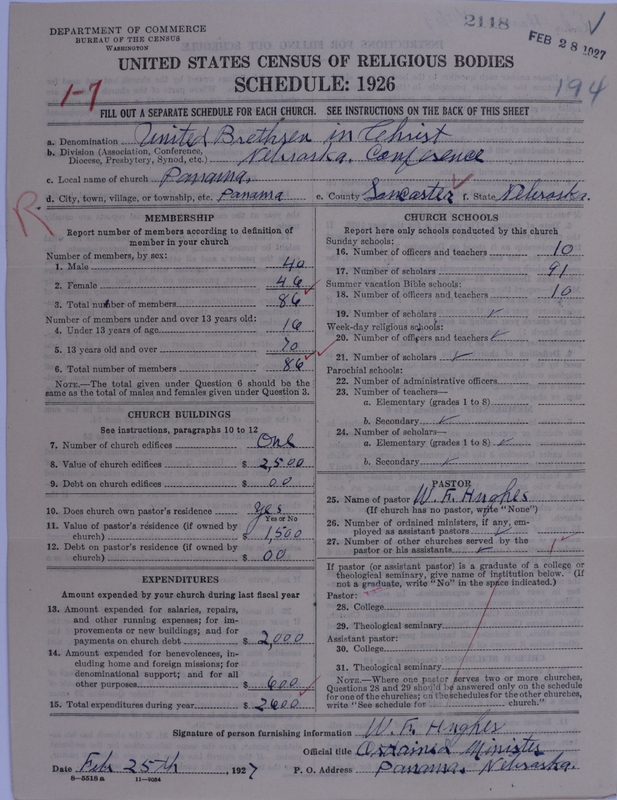 2118
DEPARTMENT OF COMMERCE
BUREAU OF THE CENSUS
WASHINGTON
FEB 28 1927
UNITED STATES CENSUS OF RELIGIOUS BODIES
SCHEDULE: 1926
1-7
194
FILL OUT A SEPARATE SCHEDULE FOR EACH CHURCH. SEE INSTRUCTIONS ON THE BACK OF THIS SHEET
a. Denomination United Brethren in Christ
b. Division (Association, Conference, Diocese, Presbytery, Synod, etc.) Nebraska Conference
c. Local name of church Panama
d. City, town, village, or township, etc. Panama e. County Lancaster f. State Nebraska.
R.
MEMBERSHIP
Report number of members according to definition of
member in your church
Number of members, by sex:
1. Male 40
2. Female 46
3. Total number of members 86
Number of members under and over 13 years old:
4. Under 13 years of age 16
5. 13 years old and over 70
6. Total number of members 86
NOTE.—The total given under Question 6 should be the
same as the total of males and females given under Question 3.
CHURCH BUILDINGS
See instructions, paragraphs 10 to 12
7. Number of church edifices One
8. Value of church edifices $ 2,500
9. Debt on church edifices $ 00
10. Does church own pastor's residence Yes
Yes or No
11. Value of pastor's residence (if owned by
church) $ 1,500
12. Debt on pastor's residence (if owned by
church) $ 00
EXPENDITURES
Amount expended by your church during last fiscal year
13. Amount expended for salaries, repairs,
and other running expenses; for im-
provements or new buildings; and for
payments on church debt $ 2,000
14. Amount expended for benevolences, in-
cluding home and foreign missions; for
denominational support; and for all
other purposes $ 600
15. Total expenditures during year $ 2600
CHURCH SCHOOLS
Report here only schools conducted by this church
Sunday schools:
16. Number of officers and teachers 10
17. Number of scholars 91
Summer vacation Bible schools:
18. Number of officers and teachers 10
19. Number of scholars
Week-day religious schools:
20. Number of officers and teachers
21. Number of scholars
Parochial schools:
22. Number of administrative officers
23. Number of teachers—
a. Elementary (grades 1 to 8)
b. Secondary
24. Number of scholars—
a. Elementary (grades 1 to 8)
b. Secondary
PASTOR
25. Name of pastor W. F. Hughes
(If church has no pastor, write "None")
26. Number of ordained ministers, if any, em-
ployed as assistant pastors
27. Number of other churches served by the
pastor or his assistants
If pastor (or assistant pastor) is a graduate of a college or
theological seminary, give name of institution below. (If
not a graduate, write "No" in the space indicated.)
Pastor:
28. College
29. Theological seminary
Assistant pastor:
30. College
31. Theological seminary
NOTE.—Where one pastor serves two or more churches,
Questions 28 and 29 should be answered only on the schedule
for one of the churches; on the schedules for the other churches,
write "See schedule for church."
Signature of person furnishing information W. F. Hughes
Official title Ordained Minister
Date Feb 25th, 1927 P. O. Address Panama, Nebraska.
8-5518a 11-9064